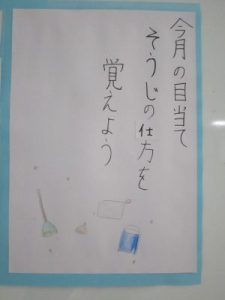 今月の目当て
そうじの仕方を
覚えよう